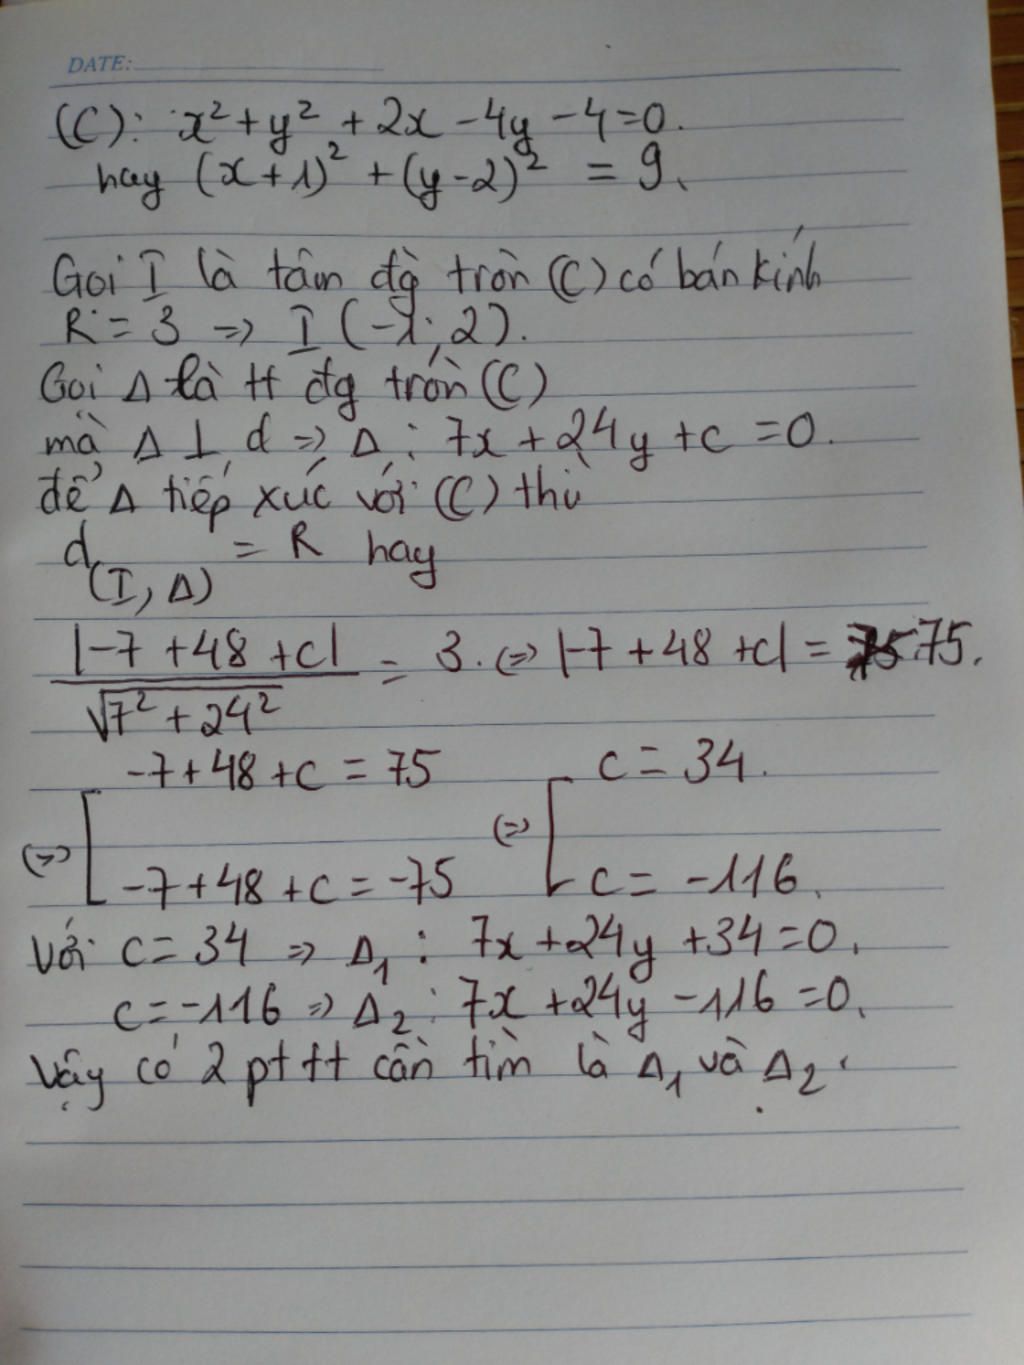 DATE:
(C): x² + y² + 2x - 4y - 4 = 0.
hay (x+1)² + (y-2)² = 9.
Gọi I là tâm đg tròn (C) có bán kính
R = 3 => I (-1; 2).
Gọi Δ là tt đg tròn (C)
mà Δ ⊥ d => Δ: 7x + 24y + c = 0.
để Δ tiếp xúc với (C) thì
d(I, Δ) = R hay
|-7 + 48 + c| / √7² + 24² = 3. <=> |-7 + 48 + c| = 75.
<=> [ -7 + 48 + c = 75 <=> [ c = 34.
-7 + 48 + c = -75 c = -116.
Với c = 34 => Δ₁: 7x + 24y + 34 = 0.
c = -116 => Δ₂: 7x + 24y - 116 = 0.
Vậy có 2 pt tt cần tìm là Δ₁ và Δ₂.